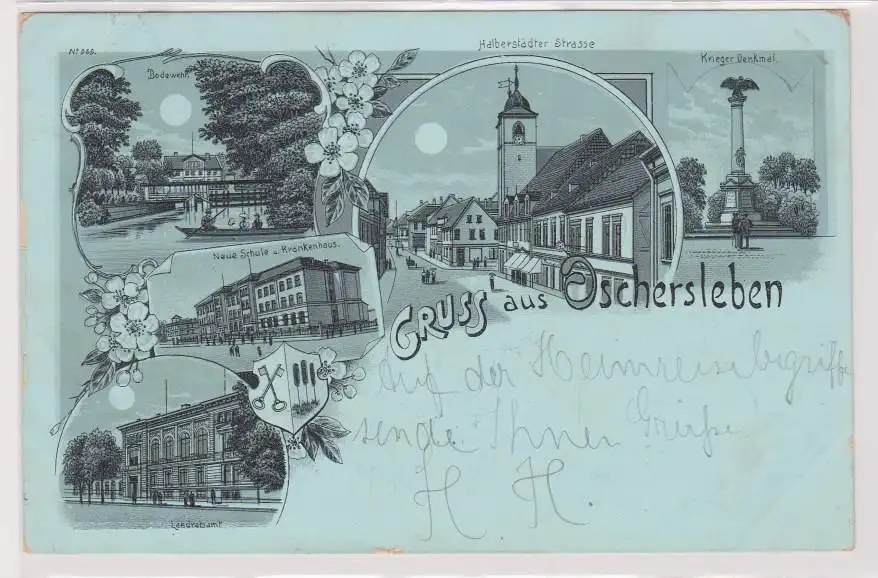 Nº 969.
Bodewehr.
Halberstädter Strasse
Krieger Denkmal.
Neue Schule u. Krankenhaus.
Gruss aus Oschersleben
Landratsamt
Auf der Heimreise begriffen
sende Ihnen Grüße
H. H.